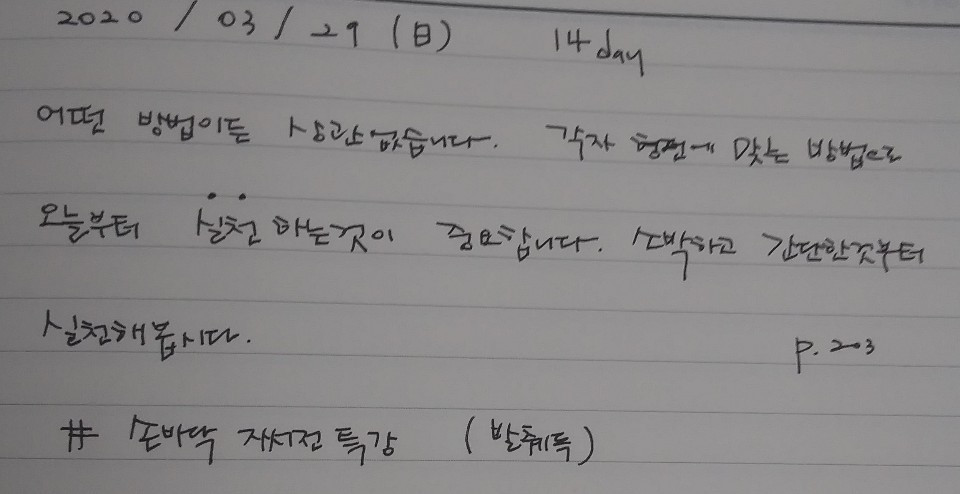 2020 / 03 / 29 (日) 14 day
어떤 방법이든 상관없습니다. 각자 형편에 맞는 방법으로
오늘부터 실천 하는것이 중요합니다. 소박하고 간단한것부터
실천해봅시다. p. 203
# 손바닥 자서전 특강 (발췌독)